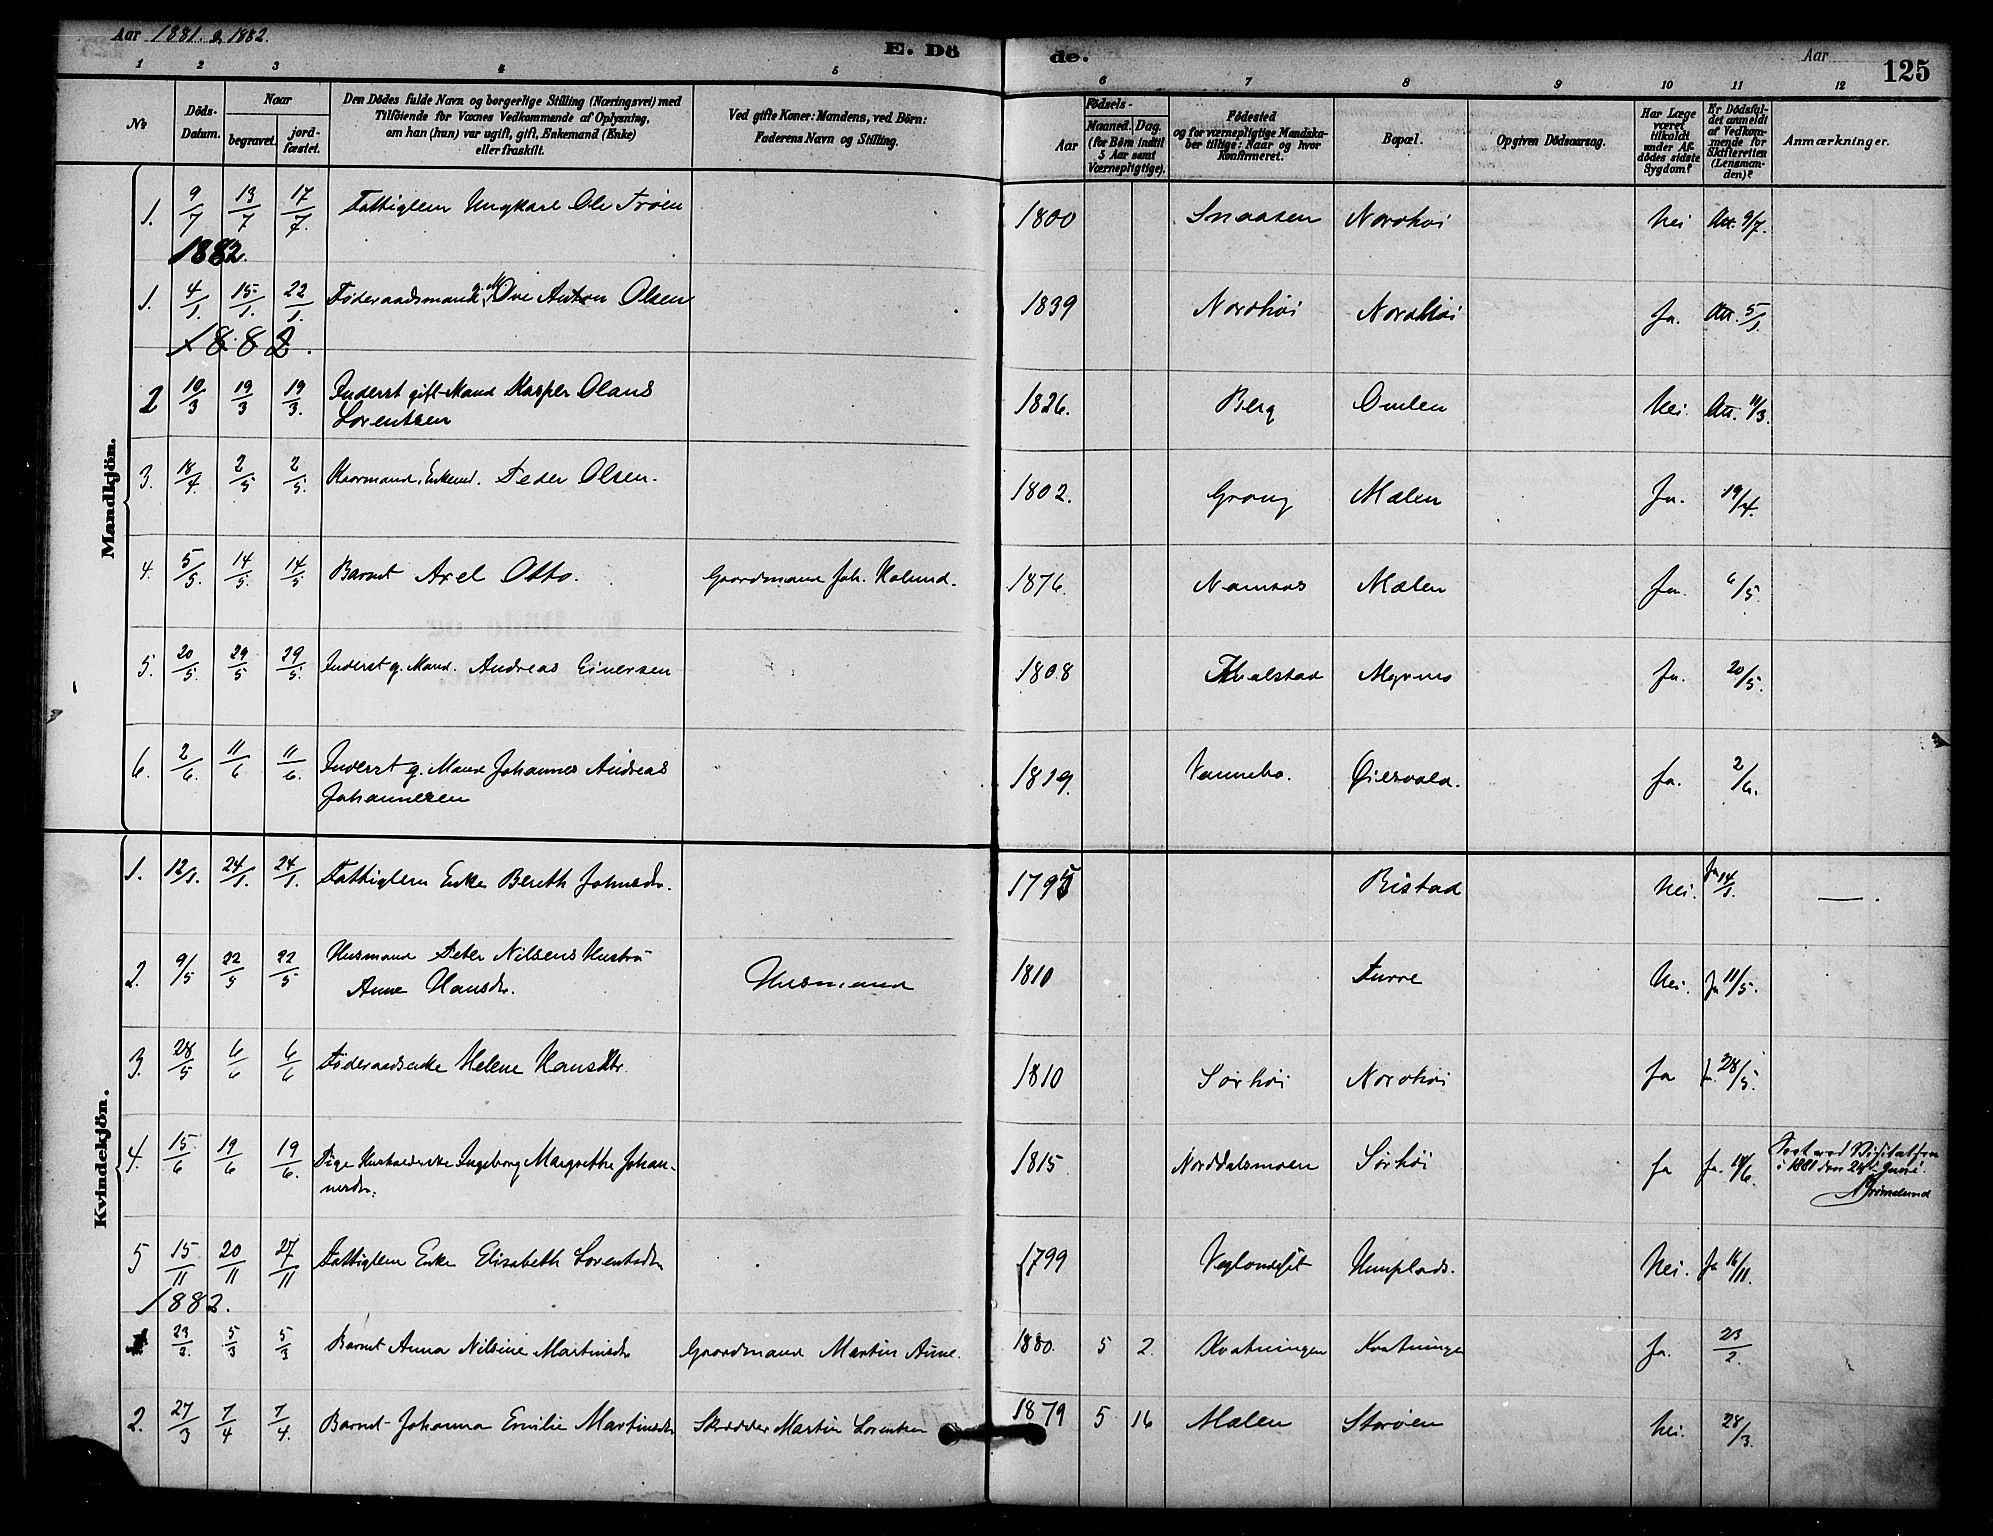 Aar 1881 & 1882.
E. Döde.
Aar
125
1 2 3 4 5 6 7 8 9 10 11 12
No
Döds-Datum.
Naar
begravet.
jordfæstet.
Den Dödes fulde Navn og borgerlige Stilling (Næringsvei) med
Tilföiende for Voxnes Vedkommende af Oplysning,
om han (hun) var ugift, gift, Enkemand (Enke)
eller fraskilt.
Ved gifte Koner: Mandens, ved Börn:
Faderens Navn og Stilling.
Födsels-
Aar
Maaned. Dag.
(for Börn indtil
5 Aar samt
Værnepligtige).
Födested
og for værnepligtige Mandskaber tillige: Naar og hvor
konfirmeret.
Bopæl.
Opgiven Dödsaarsag.
Har Læge
været
tilkaldt
under Afdödes sidste
Sygdom?
Er Dödsfaldet anmeldt
af Vedkommende for
Skifteretten
(Lensmanden)?
Anmærkninger.
Mandkjön.
1. 9/7 13/7 17/7. Fattiglem Ungkarl Ole Trøen 1800 Snaasen Nordhøi Nei Att. 9/7.
1882.
1. 4/1. 15/1. 22/1. Föderaadsmand g. M. Ove Anton Olsen 1839 Nordhøi Nordhøi Ja. Att. 5/1.
1882.
2 10/3 19/3 19/3. Inderst gift Mand Kasper Olaus
Lorentsen 1826. Berg Omlen Nei. Att. 11/3.
3. 18/4 2/5 2/5. Kaarmand, Enkem. Peder Olsen. 1802. Grong Mælen Ja. 19/4.
4. 5/5. 14/5. 14/5 Barnet Axel Otto. Gaardmand Joh. Holund. 1876. Namsos Mælen Ja. 6/5.
5. 20/5. 29/5 29/5. Inderst g. Mand. Andreas Eiversen 1808 Kvalstad Myrmo Ja. 20/5.
6. 2/6. 11/6 11/6. Inderst g. Mand Johannes Andreas
Johannesen 1819. Vannebo. Øiesvold. Ja. 2/6.
Kvindekjön.
1. 12/1. 24/1. 24/1. Fattiglem Enke Bereth Johnsdr. 1795 Ristad Nei. Ja 14/1.
2. 9/5 22/5 22/5 Husmand Peter Nilsens Hustru
Anne Hansdr. Husmand 1810 Furre Nei. Ja 11/5.
3. 28/5 6/6 6/6 Föderaadsenke Helene Hansdtr. 1810 Sørhøi Nordhøi Ja Ja. 28/5.
4. 15/6 19/6 19/6. Pige Ingeborg Margrethe Johannesdr. 1815 Norddalsmoen Sørhøi Ja Ja. 19/6.
ved Visitatsen
i 1881 den 24de Juni
Grimelund
5 15/11 20/11 27/11 Fattiglem Enke Elisabeth Lorentsdr 1799 Veglandsfjt Humplads. Nei. Ja 16/11.
1882.
1 23/2. 5/3 5/3 Barnet Anna Nilsine Martinsdr Gaardmand Martin Aune. 1880. 5 2. Kvatningen Kvatningen Ja. 23/2.
2. 27/3 7/4 7/4. Barnet Johanna Emilie Martinsdr Skrædder Martin Lorentsen 1879 5 16 Mælen Storøen Nei. 28/3.